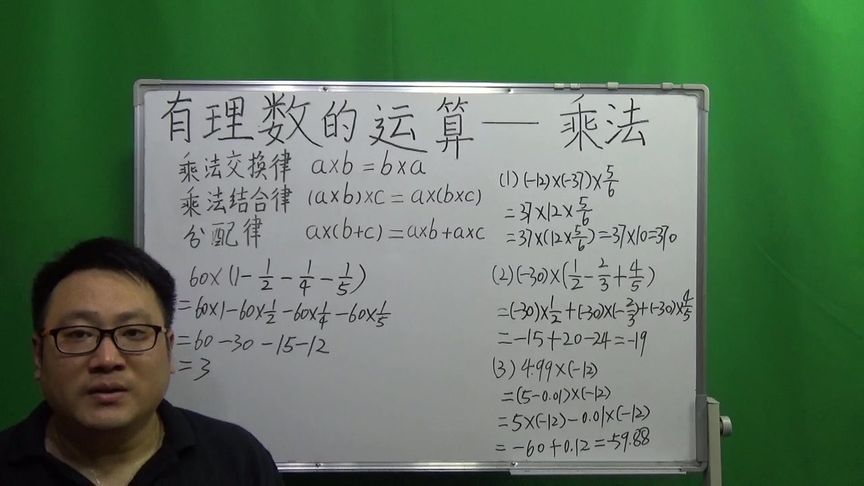 有理数的运算—乘法
乘法交换律 a×b=b×a
乘法结合律 (a×b)×c=a×(b×c)
分配律 a×(b+c)=a×b+a×c
60×(1-1/2-1/4-1/5)
=60×1-60×1/2-60×1/4-60×1/5
=60-30-15-12
=3
(1) (-12)×(-37)×5/6
=37×12×5/6
=37×(12×5/6)=37×10=370
(2)(-30)×(1/2-2/3+4/5)
=(-30)×1/2+(-30)×(-2/3)+(-30)×4/5
=-15+20-24=-19
(3) 4.99×(-12)
=(5-0.01)×(-12)
=5×(-12)-0.01×(-12)
=-60+0.12=-59.88